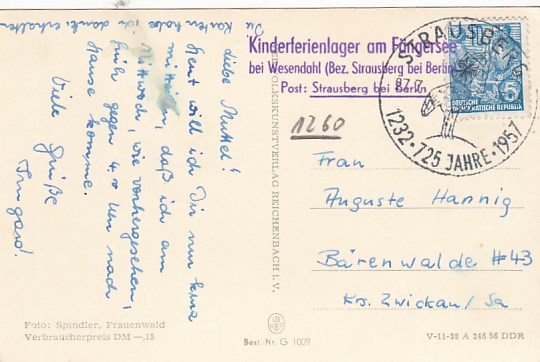 Die
Karten habe ich dank. erhalten.
Liebe Mutti!
Heut will ich Dir nur kurz
mitteilen, daß ich am
Mittwoch, wie vorhergesehen,
früh gegen 4.00 Uhr nach
Hause komme.
Viele
Grüße
Irmgard.
Kinderferienlager am Fängersee
bei Wesendahl (Bez. Strausberg bei Berlin)
Post: Strausberg bei Berlin
STRAUSBERG
1232 · 725 JAHRE · 1957
DEUTSCHE
DEMOKRATISCHE REPUBLIK
1260
VOLKSKUNSTVERLAG REICHENBACH I. V.
Frau
Auguste Hannig
Bärenwalde #43
Krs. Zwickau/Sa
Foto: Spindler, Frauenwald
Verbraucherpreis DM —,15
Best.-Nr. G 1009
V-11-28 A 246/56 DDR